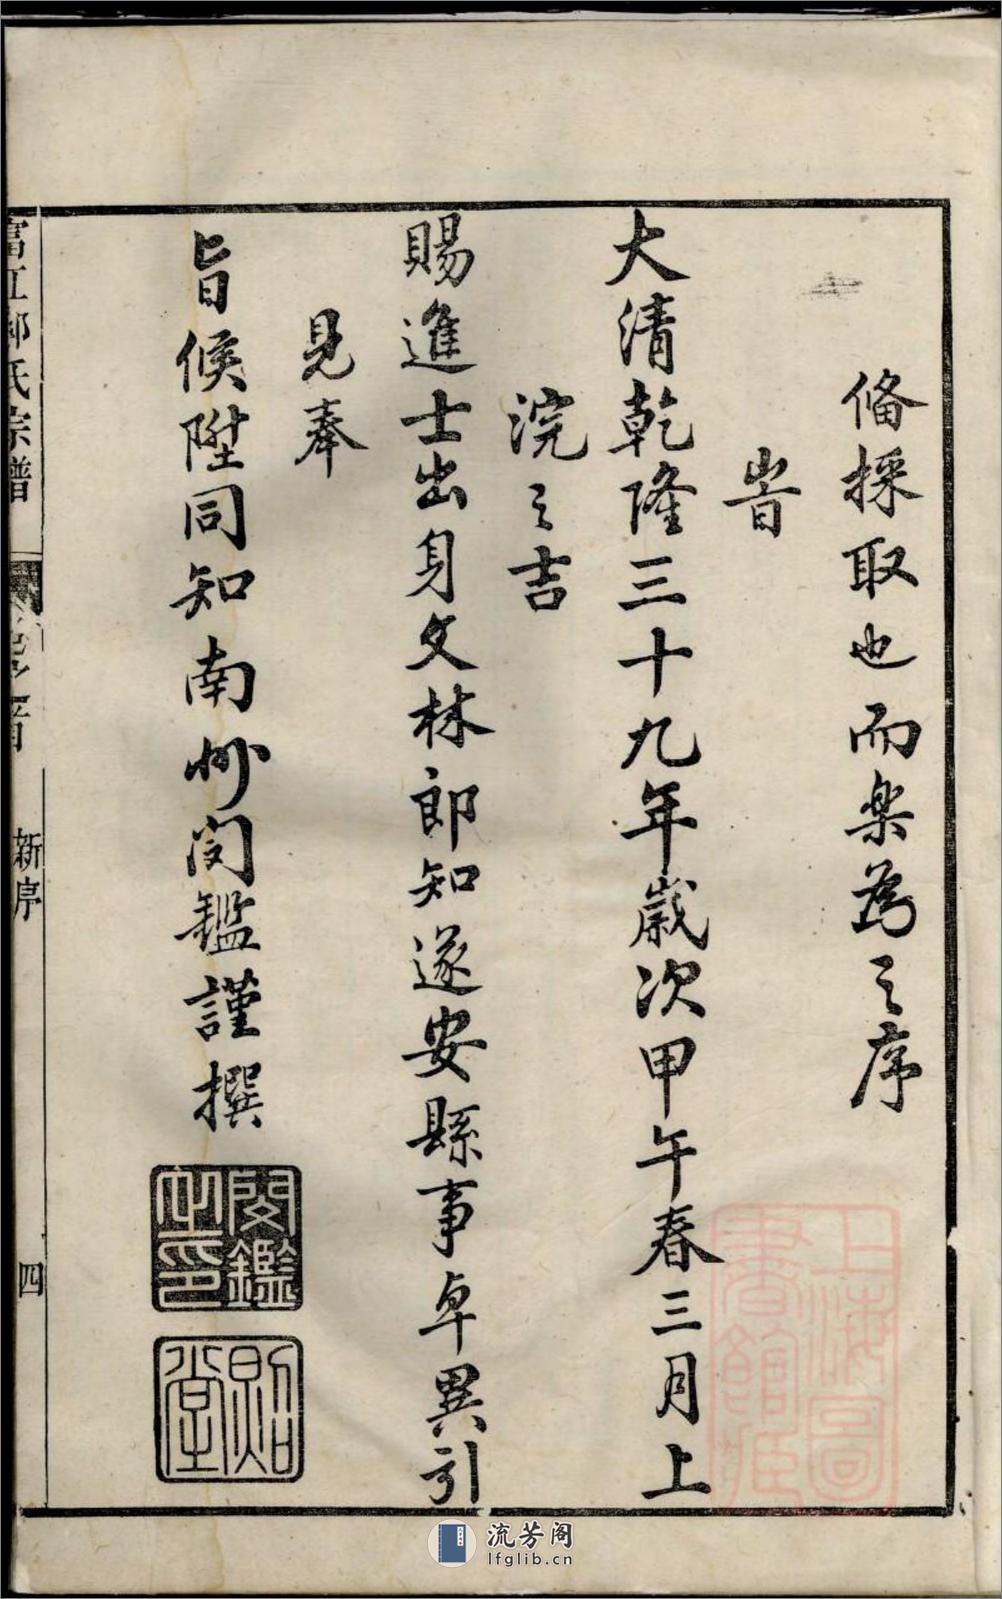 俻採取也而楽為之序
旹
大清乾隆三十九年歲次甲午春三月上
浣之吉
賜進士出身文林郎知遂安縣事卓異引
見奉
旨候陞同知南州閔鑑謹撰
閔鑑之印
堂
富江氏宗譜
卷之首
新序
四
上海圖書館藏
流芳阁
lfglib.cn